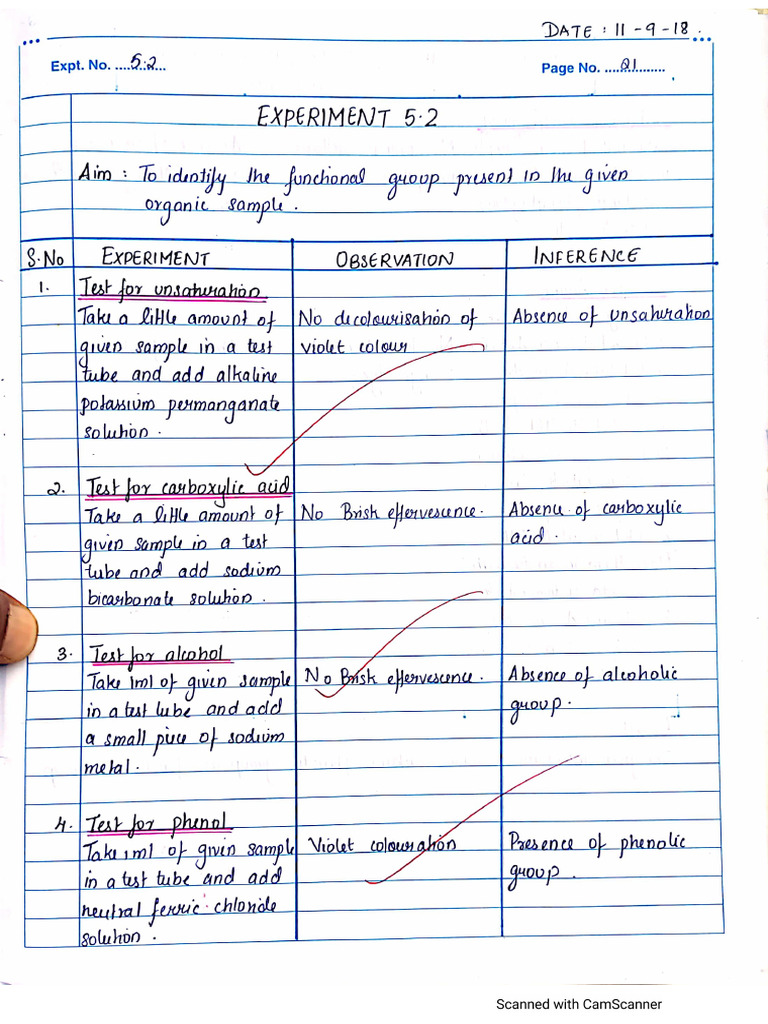 DATE : 11-9-18.
Expt. No. ....5.2.... Page No. ...21...
EXPERIMENT 5.2
Aim : To identify the functional group present in the given
organic sample.
S.No EXPERIMENT OBSERVATION INFERENCE
1. Test for unsaturation
Take a little amount of No decolourisation of Absence of unsaturation
given sample in a test violet colour
tube and add alkaline
potassium permanganate
solution.
2. Test for carboxylic acid
Take a little amount of No Brisk effervescence. Absence of carboxylic
given sample in a test acid.
tube and add sodium
bicarbonate solution.
3. Test for alcohol
Take 1ml of given sample No Brisk effervescence. Absence of alcoholic
in a test tube and add group.
a small piece of sodium
metal.
4. Test for phenol
Take 1ml of given sample Violet colouration Presence of phenolic
in a test tube and add group.
neutral ferric chloride
solution.
Scanned with CamScanner